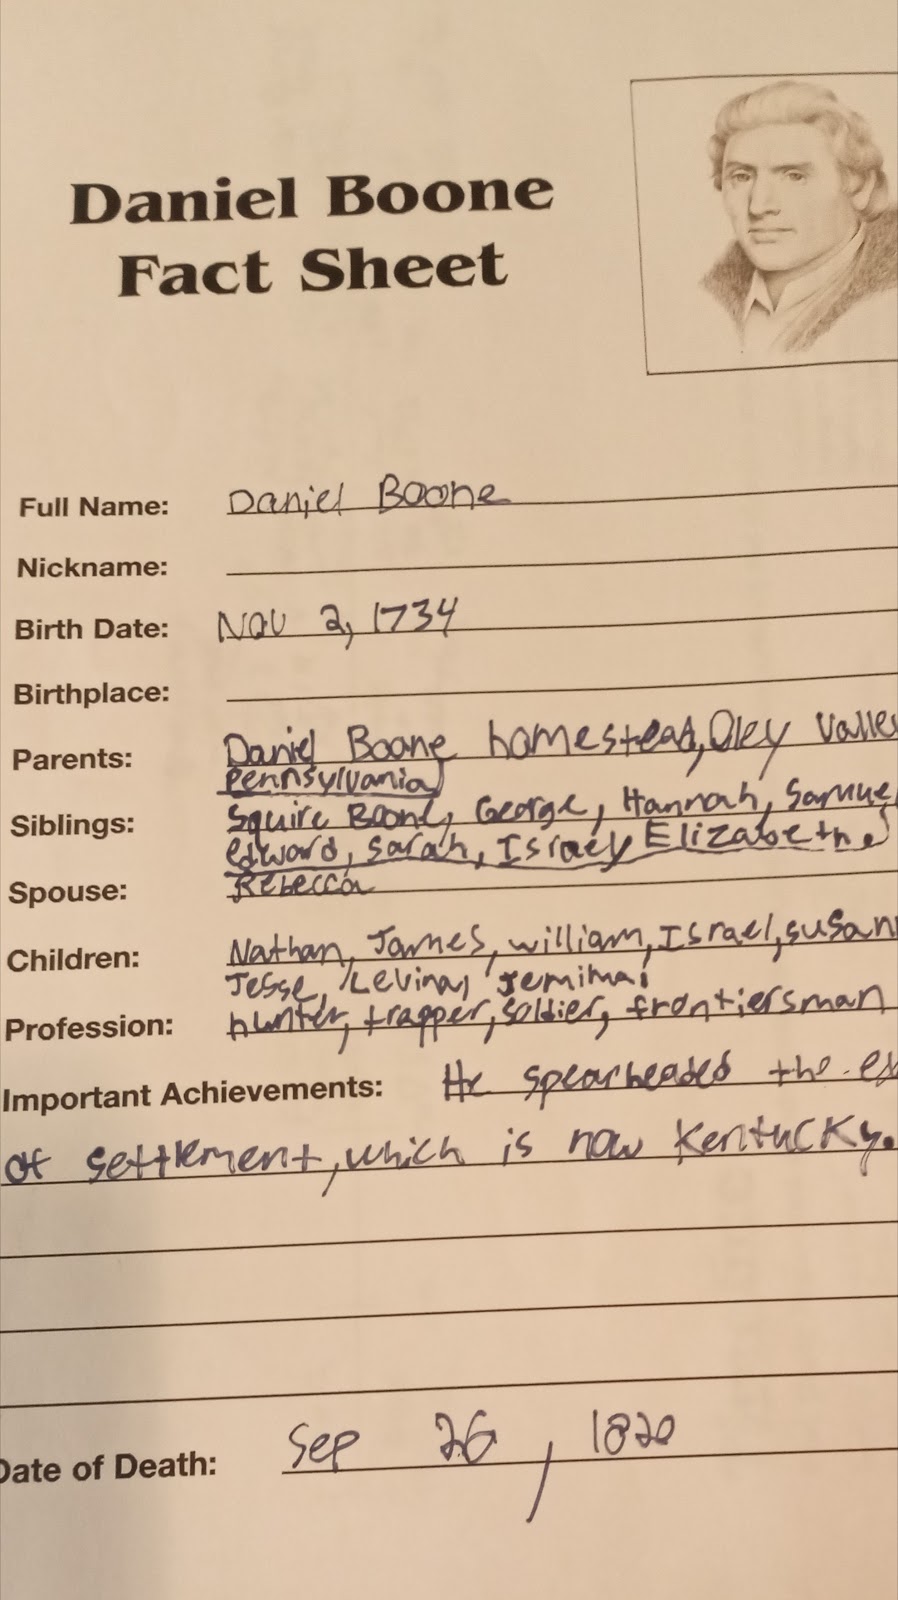 Daniel Boone
Fact Sheet
Full Name: Daniel Boone
Nickname:
Birth Date: Nov 2, 1734
Birthplace:
Parents: Daniel Boone homestead, Oley Valle
Pennsylvania
Siblings: Squire Boone, George, Hannah, Samue
edward, sarah, Israel, Elizabeth
Spouse: Rebecca
Children: Nathan, James, william, Israel, susan
Jesse, Levina, Jemima.
Profession: hunter, trapper, soldier, frontiersman
Important Achievements: He spearheaded the ex
of settlement, which is now Kentucky.
Date of Death: Sep 26, 1820